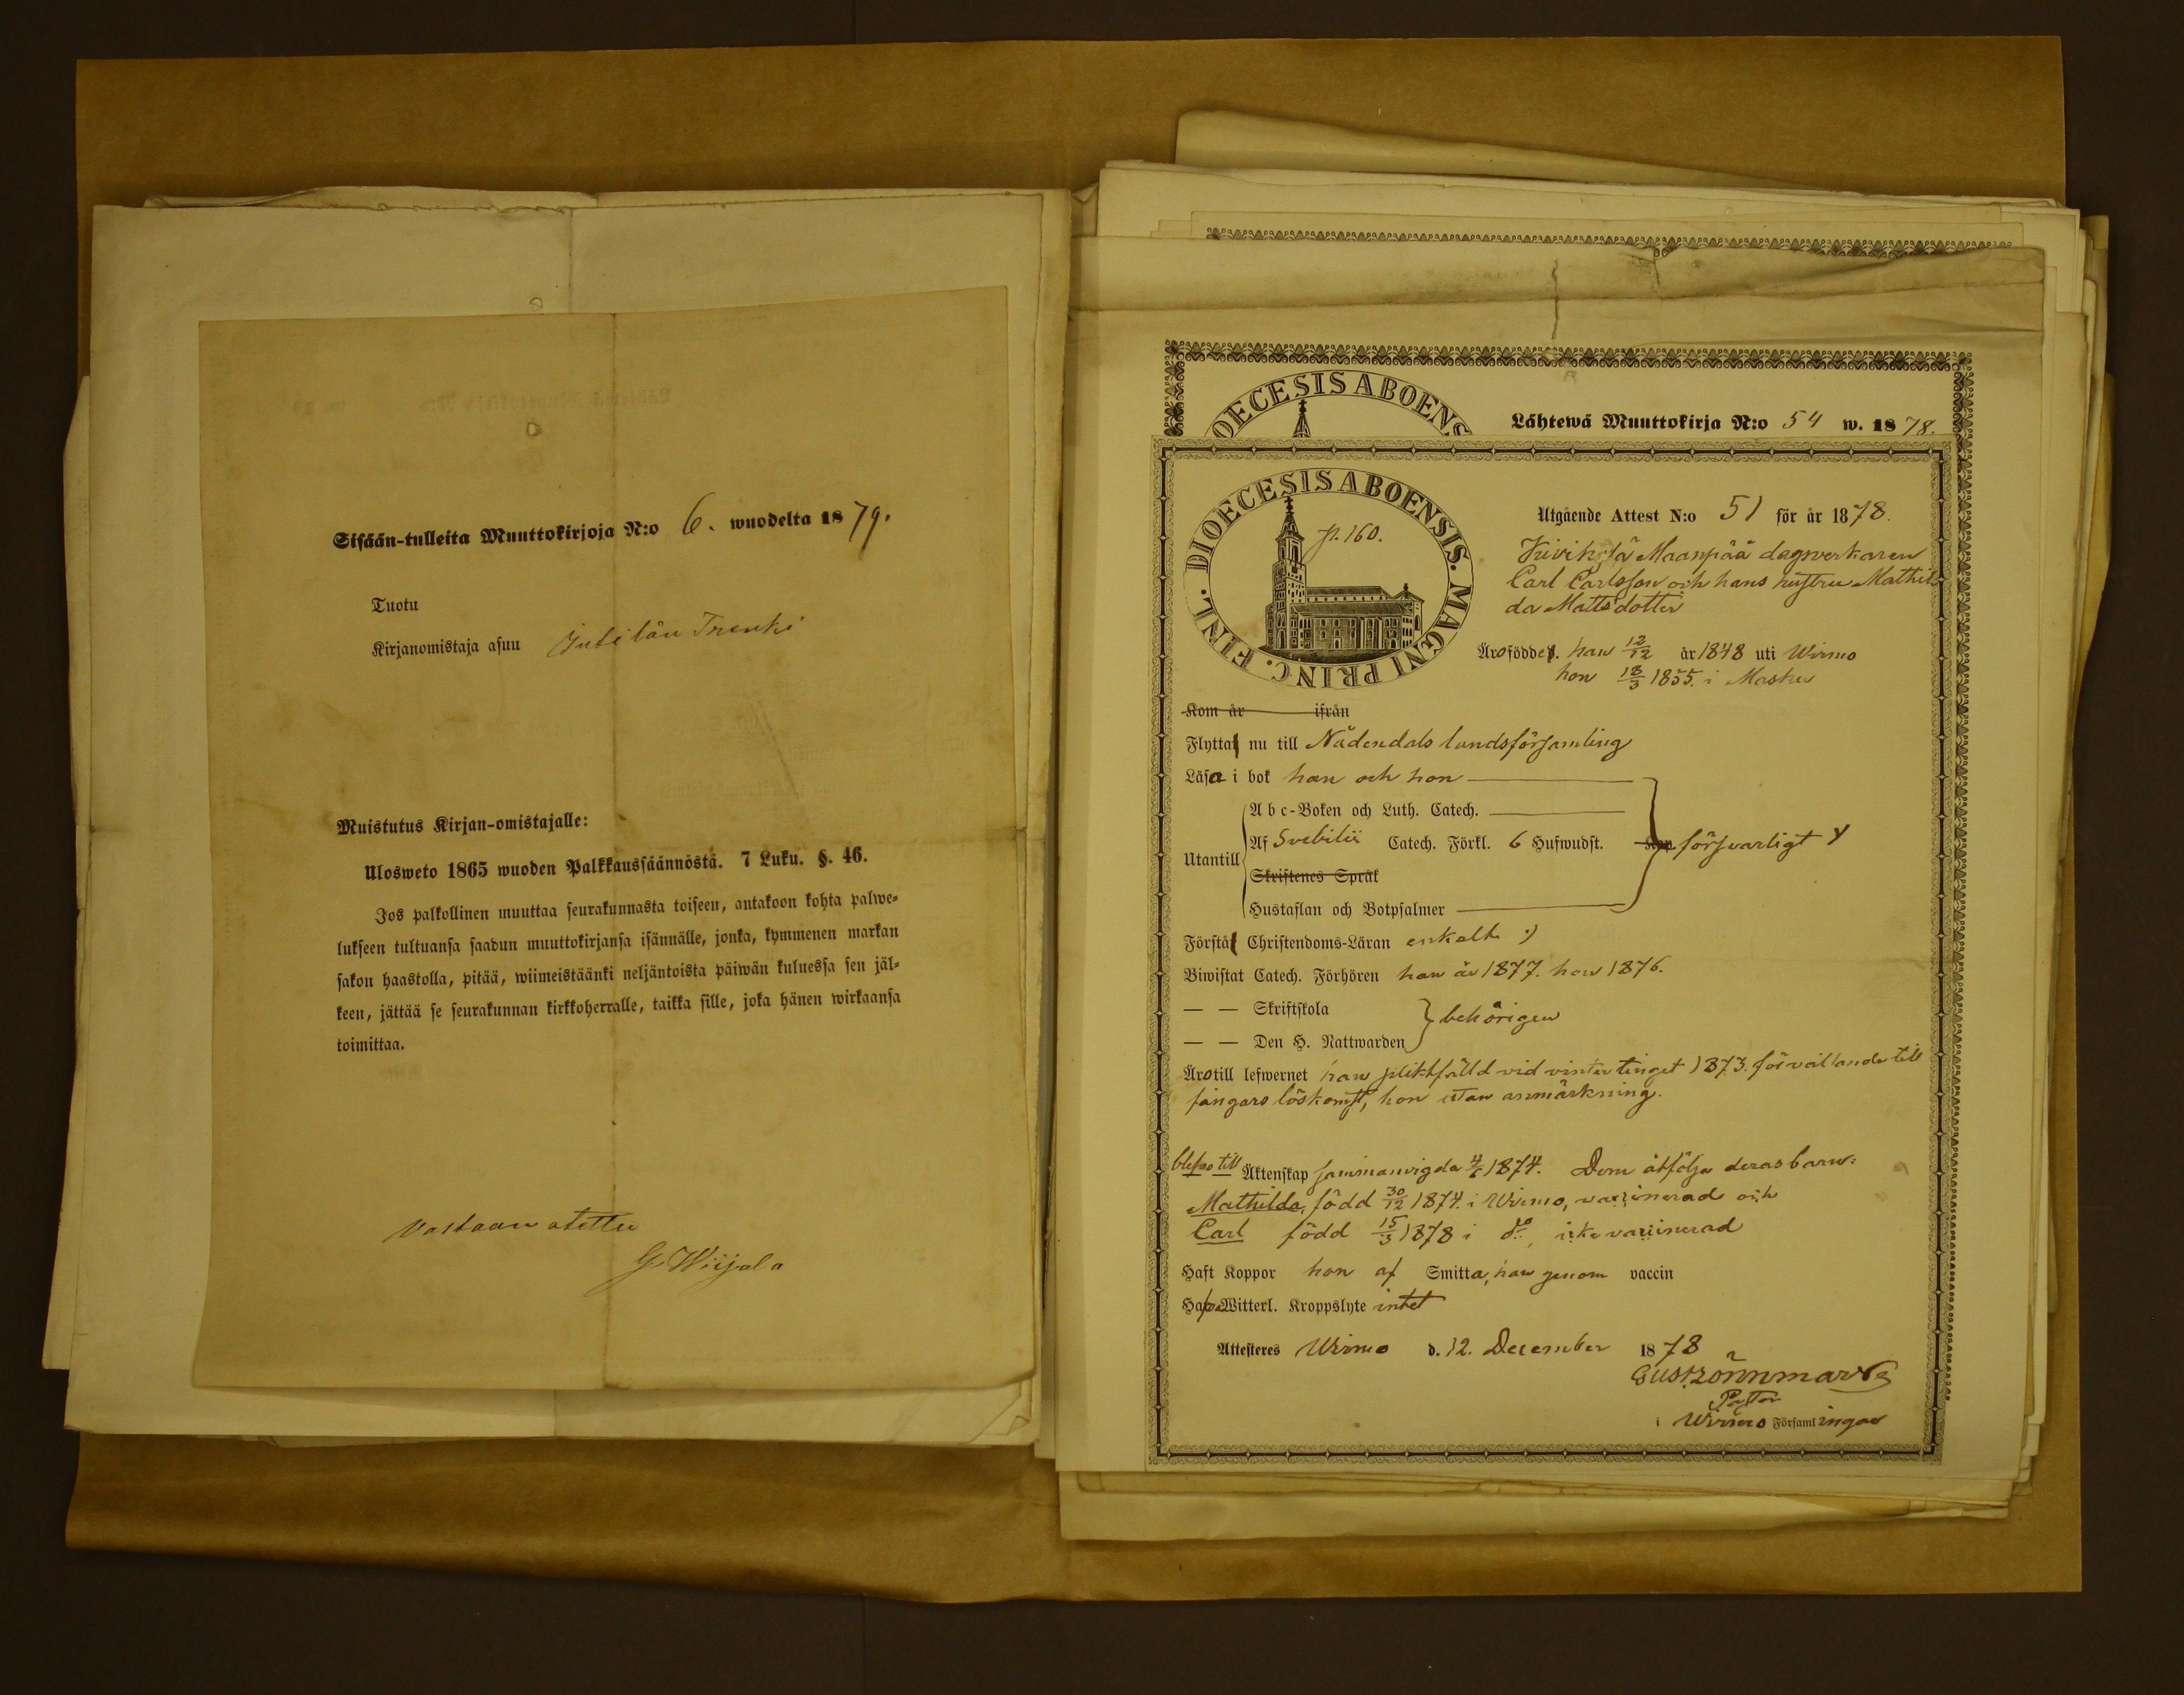 Sisään-tulleita Muuttokirjoja N:o 6. wuodelta 1879.
Tuotu
Kirjanomistaja asuu
Muistutus Kirjan-omistajalle:
Ulosweto 1865 wuoden Palkkaussäännöstä. 7 Luku. §. 46.
Jos palkollinen muuttaa seurakunnasta toiseen, antakoon kohta palwe-
lukseen tultuansa saadun muuttokirjansa isännälle, jonka, kymmenen markan
sakon haastolla, pitää, wiimeistäänki neljäntoista päiwän kuluessa sen jäl-
keen, jättää se seurakunnan kirkkoherralle, taikka sille, joka hänen wirkaansa
toimittaa.
Vastaan otettu
G. Wiijala
DIOECESIS ABOENS
Lähtewä Muuttokirja N:o 54 w. 1878.
DIOECESIS ABOENSIS. MAGNI PRINC. FINL.
p. 160.
Utgående Attest N:o 51 för år 1878.
Maanpää dagsverkaren
Carl Carlsson och hans hustru Mathil
da Mattsdotter
Äro födde. han 12/12 år 1848 uti Wirmo
hon 18/3 1855. i Masku
Kom år ifrån
Flytta nu till Nådendals landsförsamling
Läsa i bok han och hon
A b c-Boken och Luth. Catech.
Utantill
Af Svebilii Catech. Förkl. 6 Hufwudst. försvarligt
Skriftenes Språk
Hustaflan och Botpsalmer
Förstå Christendoms-Läran enkelt
Biwistat Catech. Förhören han år 1877. hon 1876.
— — Skriftskola
behörigen
— — Den H. Nattwarden
Äro till lefwernet han pliktfälld vid vintertinget 1873. för vållande till
fångars löskomst, hon utan anmärkning.
blefvo till Äktenskap sammanvigda 4/6 1874. Dem åtfölja deras barn:
Mathilda, född 30/12 1874. i Wirmo, vaccinerad och
Carl född 15/3 1878 i do, icke vaccinerad
Haft Koppor hon af Smitta, han genom vaccin
Hafva Witterl. Kroppslyte intet
Attesteres Wirmo d. 12. December 1878
Pastor
i Wirmo Församlingar